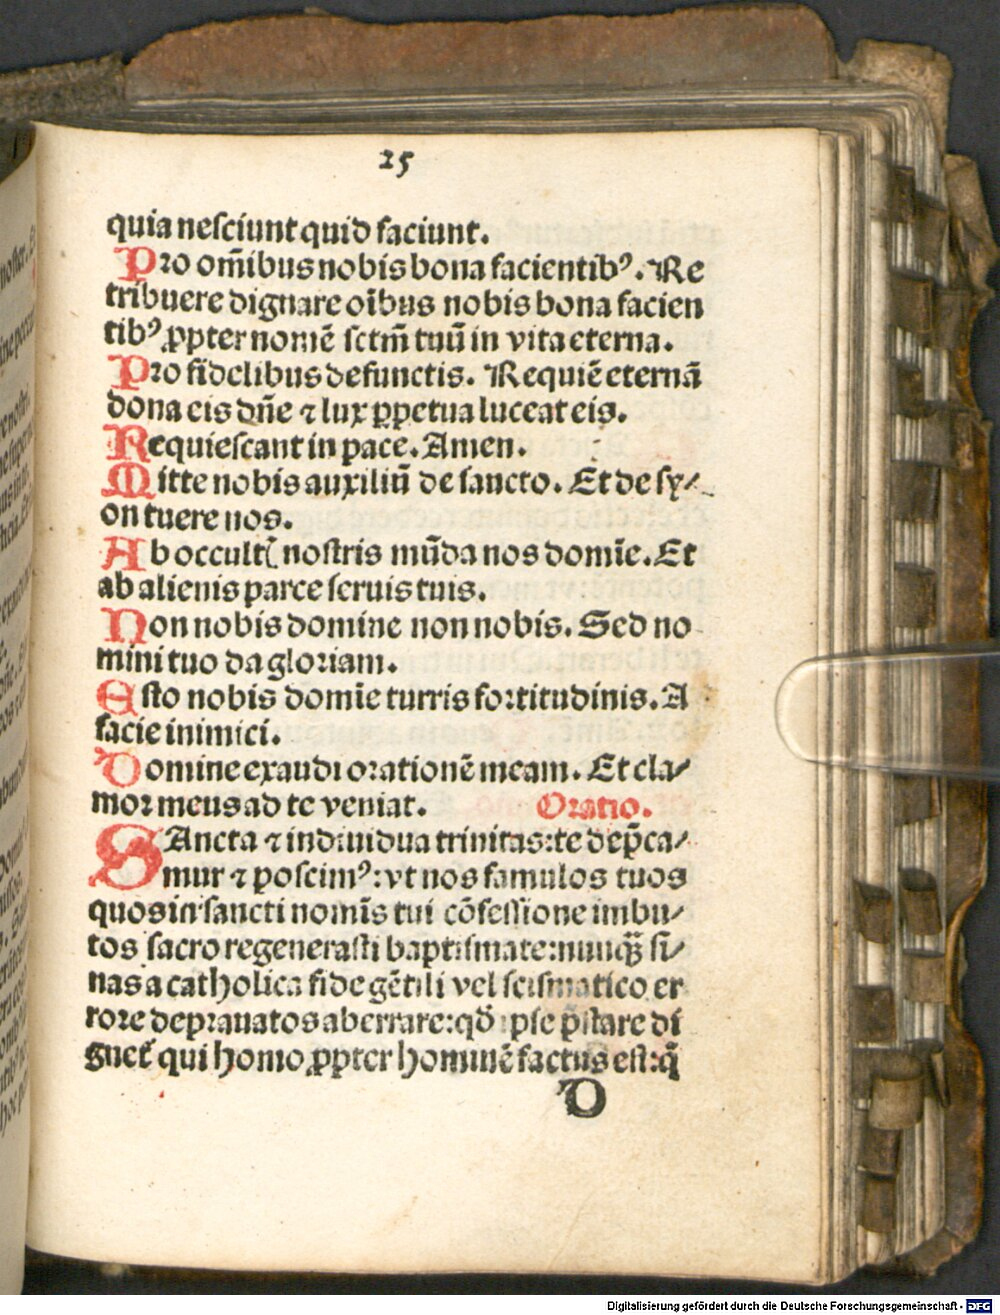 25
quia nesciunt quid faciunt.
Pro om̄ibus nobis bona facientibꝰ. Re
tribuere dignare oībus nobis bona facien
tibꝰ ꝓpter nomē sctm̄ tuū in vita eterna.
Pro fidelibus defunctis. Requiē eternā
dona eis dn̄e ⁊ lux ꝑpetua luceat eis.
Requiescant in pace. Amen.
Mitte nobis auxiliū de sancto. Et de sy⸗
on tuere nos.
Ab occultꝭ nostris mūda nos domīe. Et
ab alienis parce seruis tuis.
Non nobis domine non nobis. Sed no
mini tuo da gloriam.
Esto nobis domīe turris fortitudinis. A
facie inimici.
Domine exaudi orationē meam. Et cla⸗
mor meus ad te veniat. Oratio.
SAncta ⁊ indiuidua trinitas: te dep̄ca⸗
mur ⁊ poscimꝰ: vt nos famulos tuos
quos in sancti nomīs tui cōfessione imbu⸗
tos sacro regenerasti baptismate: nunqȝ̄ si⸗
nas a catholica fide gētili vel scismatico er
rore deprauatos aberrare: qd̄ ipse p̄stare di
gnet̄ qui homo ꝓpter hominē factus est: q̄
D
Digitalisierung gefördert durch die Deutsche Forschungsgemeinschaft - DFG